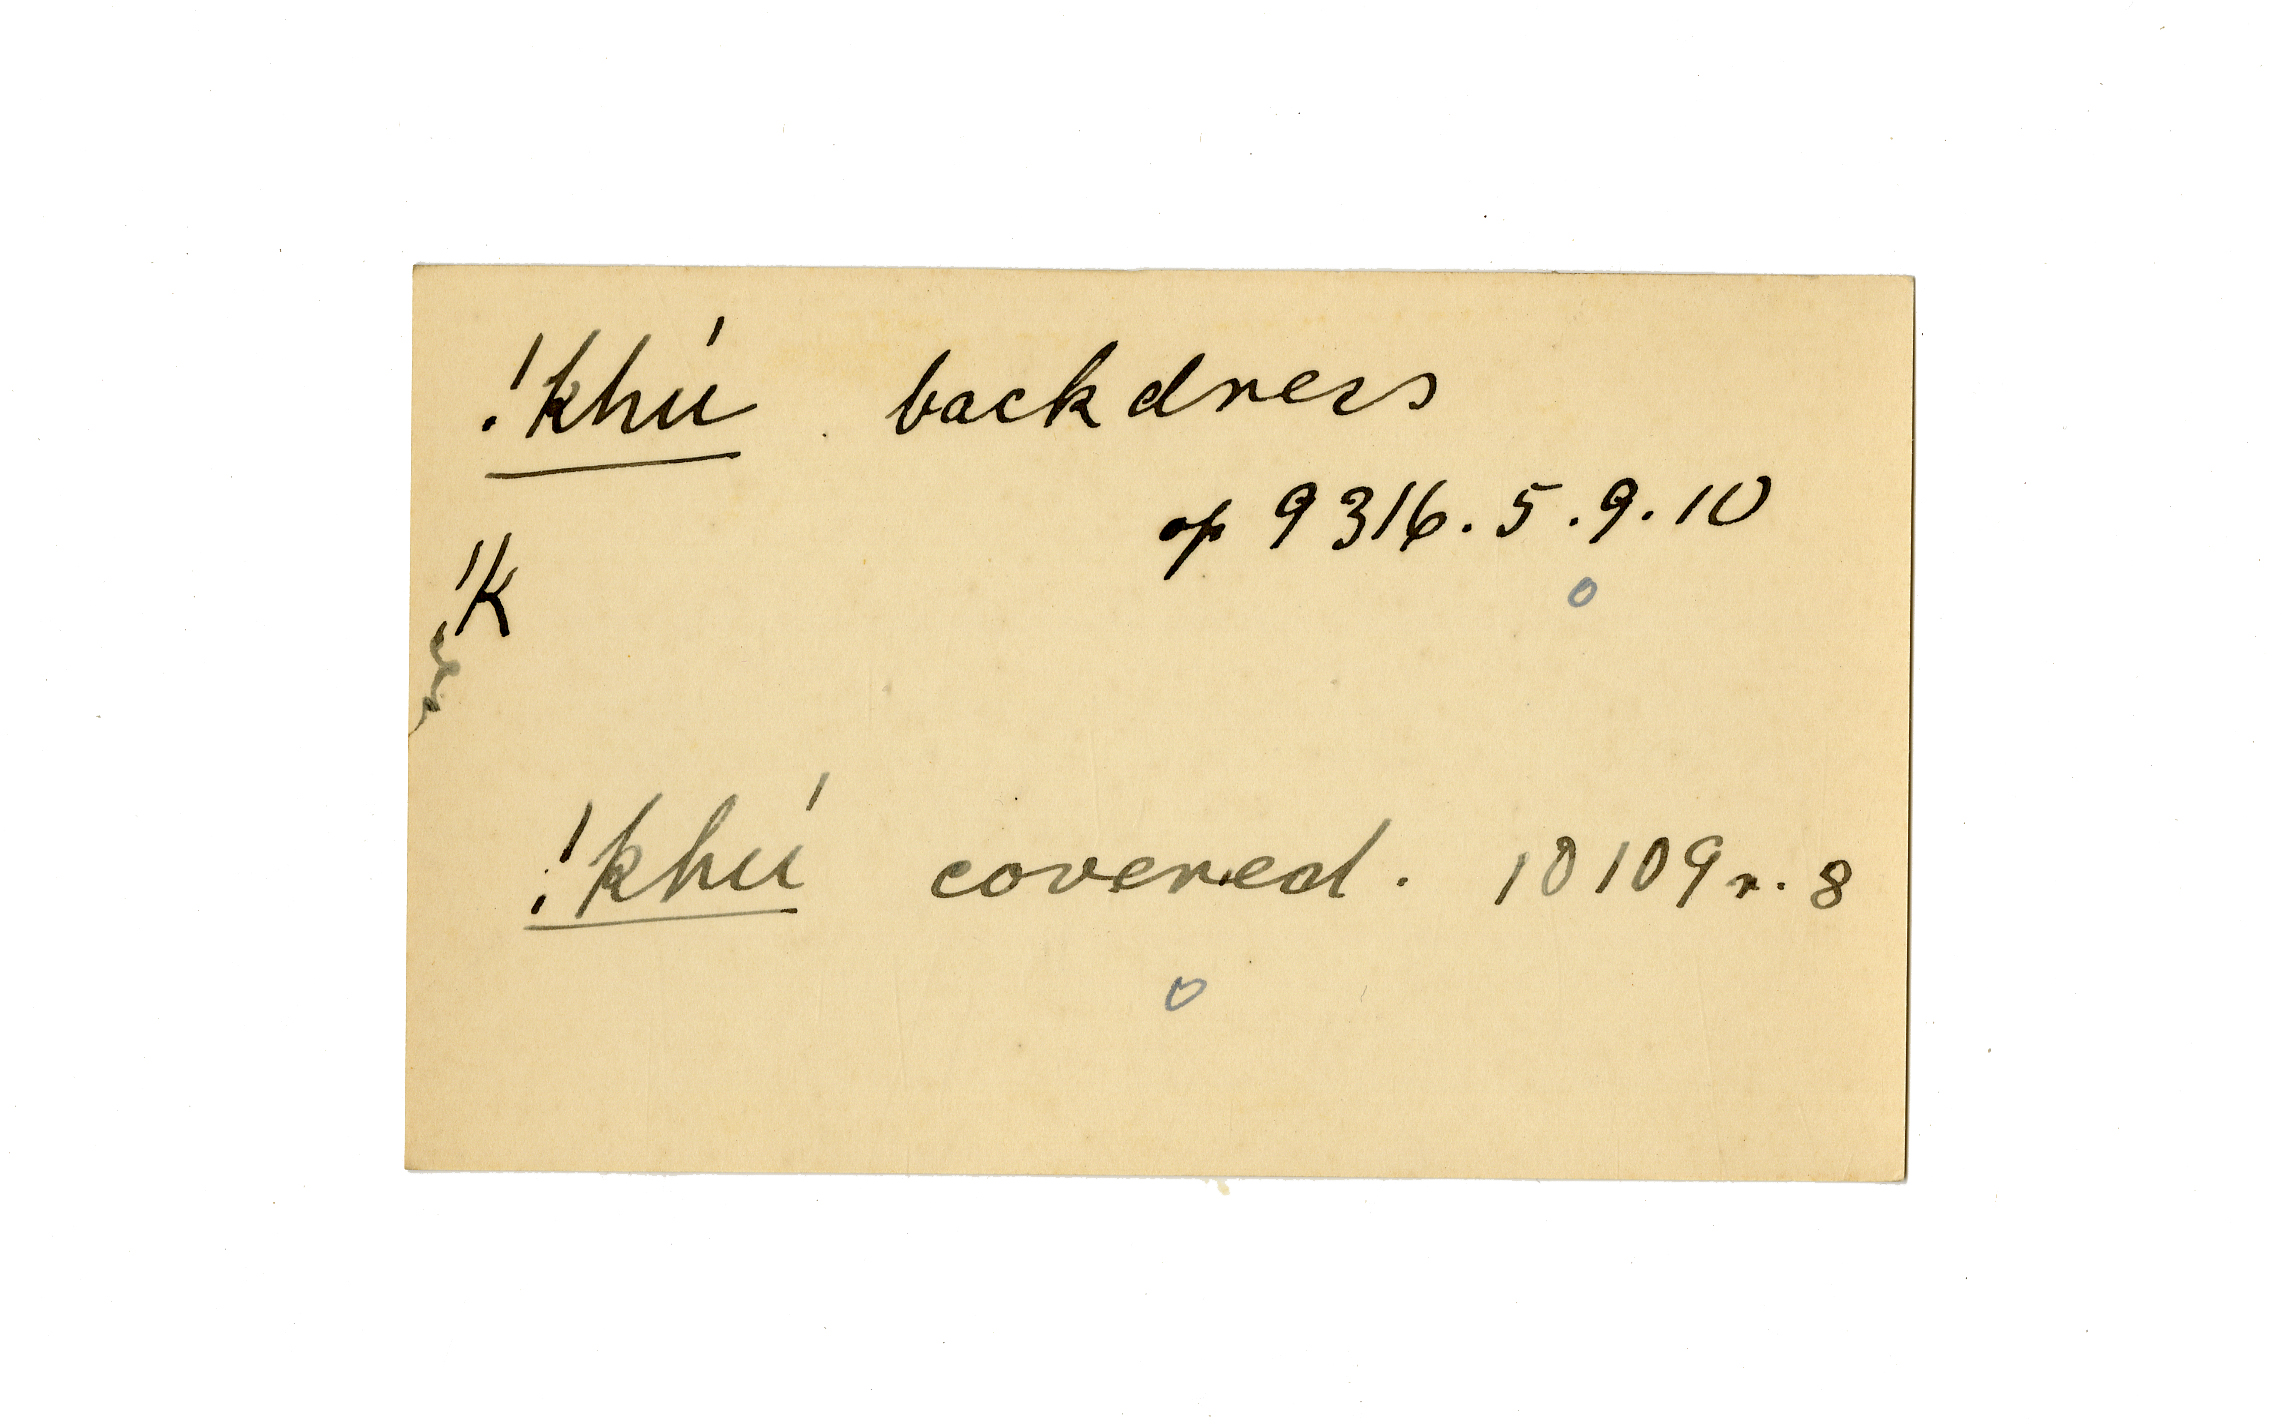 !khú backdress
op 9316.5.9.10
!k
!khú covered. 10109r.8